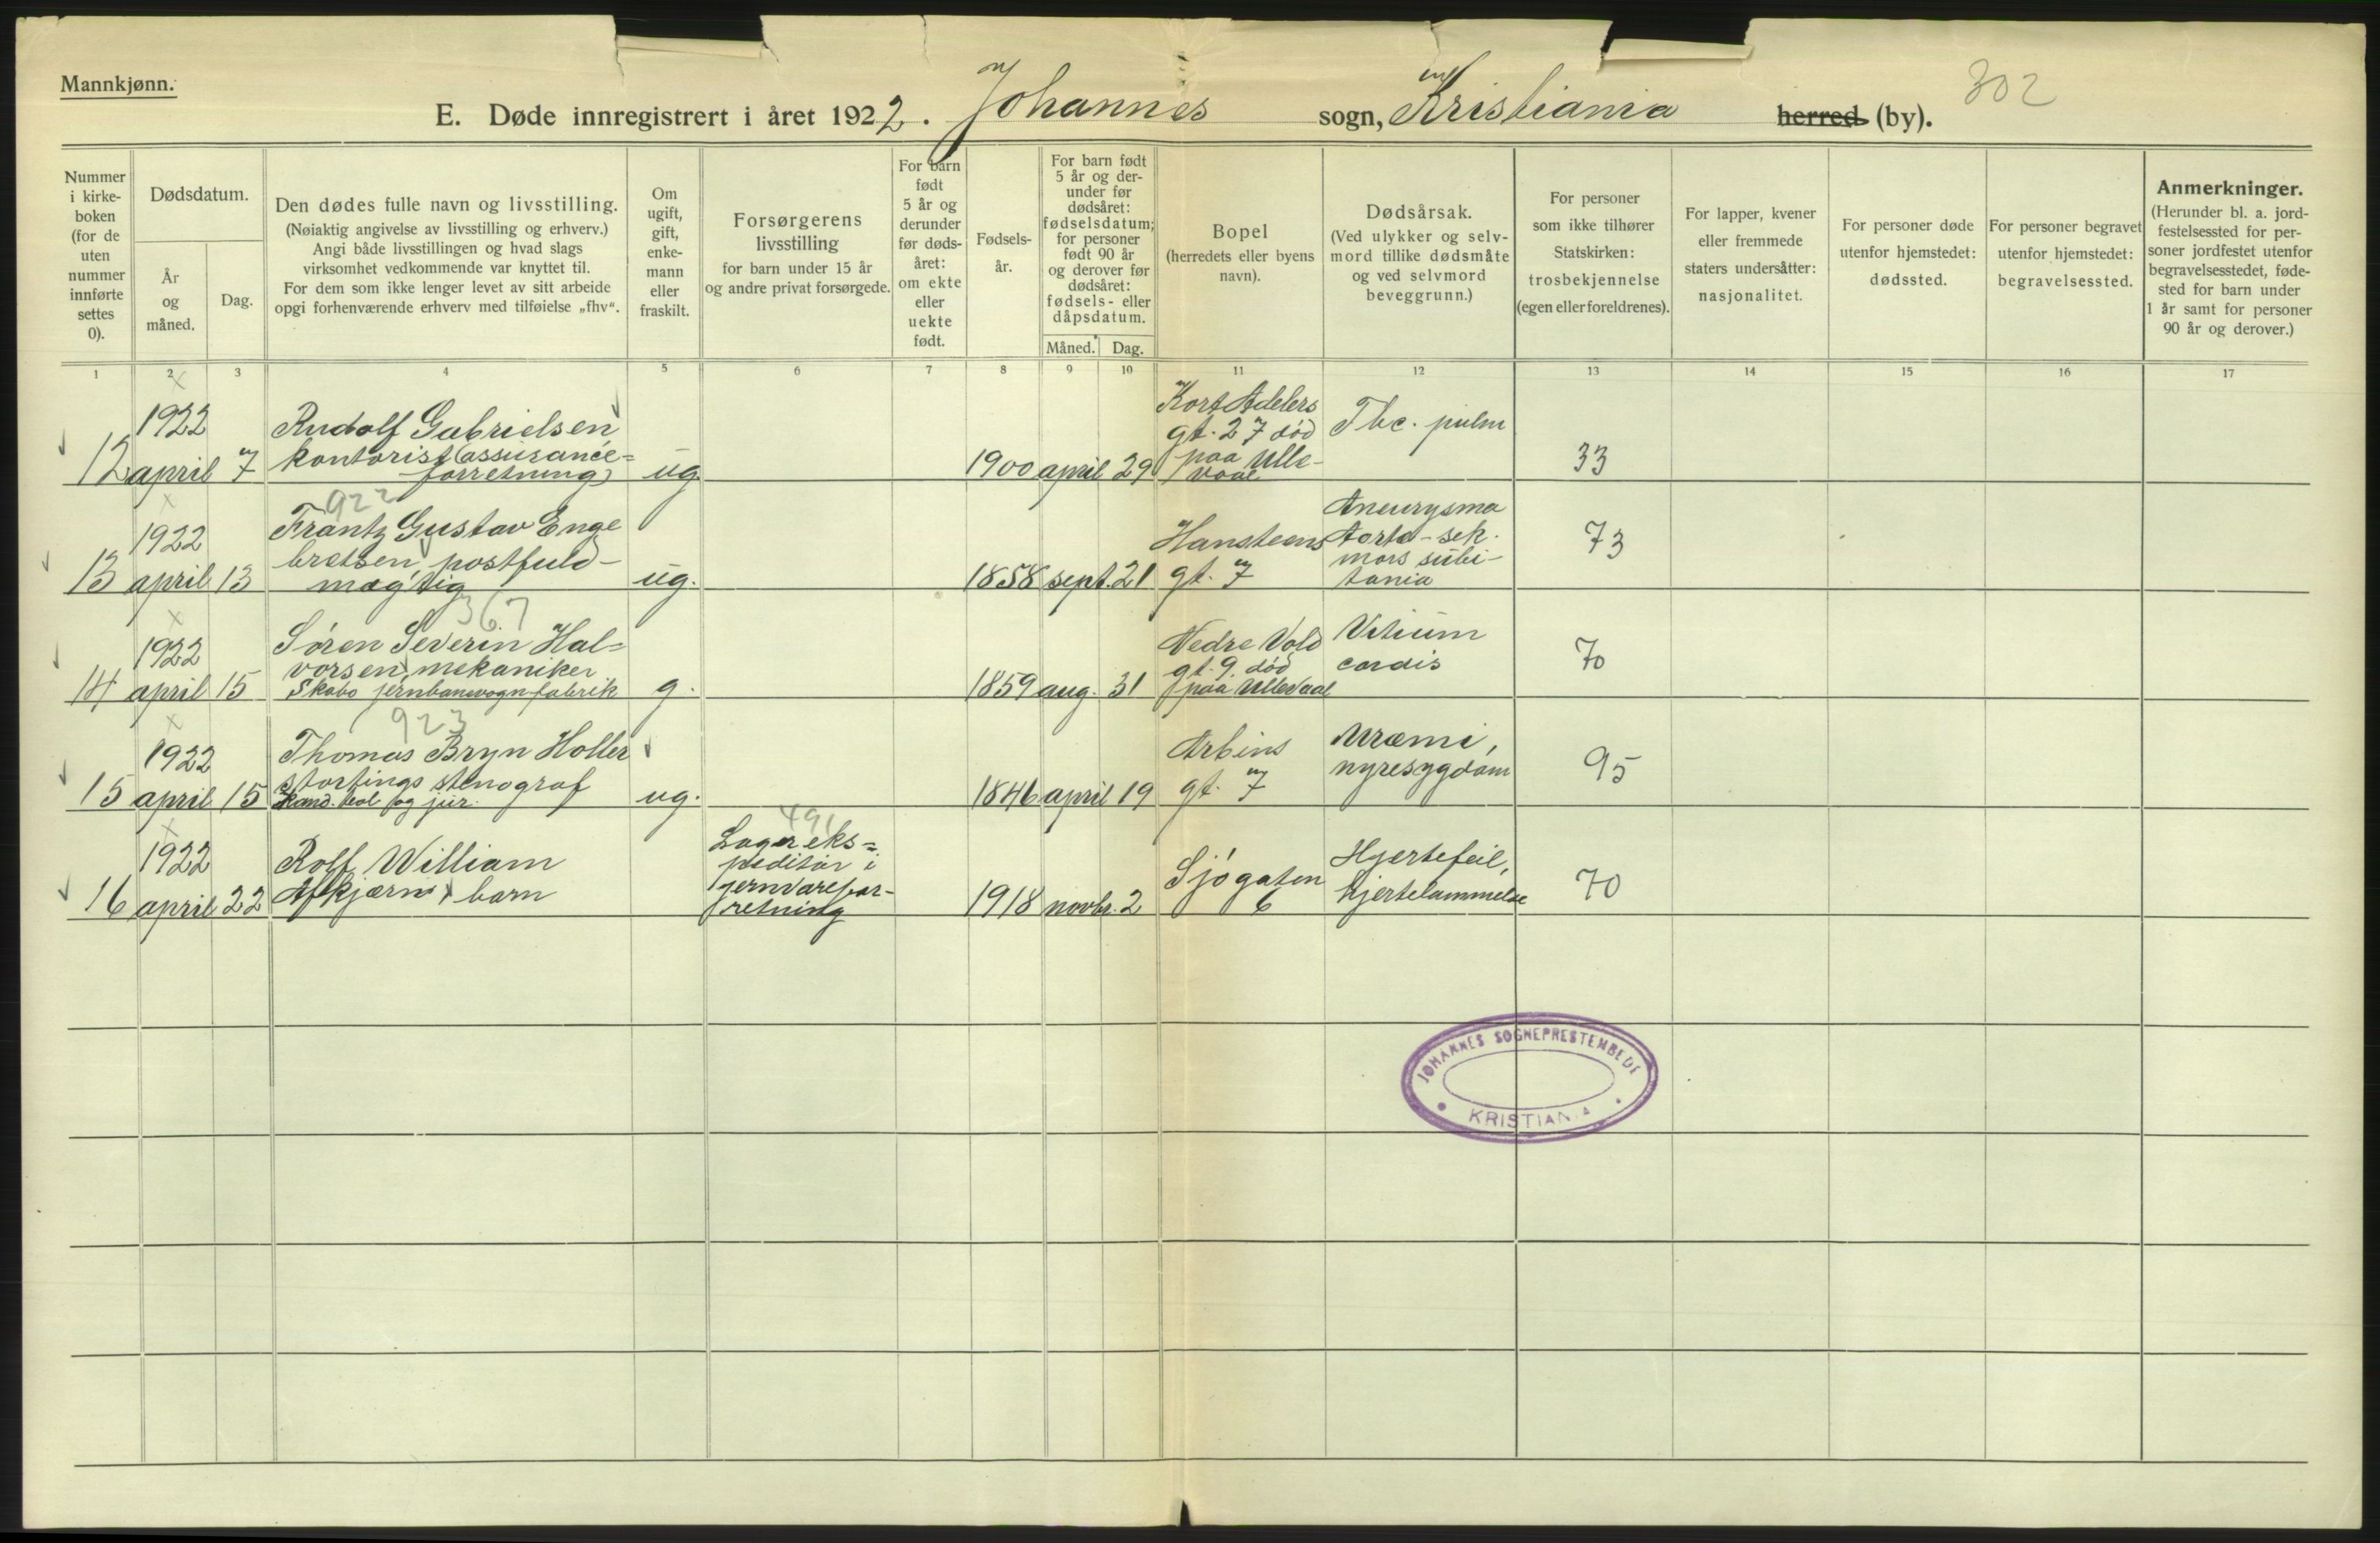 Mannkjønn.
E. Døde innregistrert i året 1922. Johannes sogn, Kristiania herred (by).
302
Nummer
i kirke-
boken
(for de
uten
nummer
innførte
settes
0).
Dødsdatum.
År
og
måned.
Dag.
Den dødes fulle navn og livsstilling.
(Nøiaktig angivelse av livsstilling og erhverv.)
Angi både livsstillingen og hvad slags
virksomhet vedkommende var knyttet til.
For dem som ikke lenger levet av sitt arbeide
opgi forhenværende erhverv med tilføielse „fhv“.
Om
ugift,
gift,
enke-
mann
eller
fraskilt.
Forsørgerens
livsstilling
for barn under 15 år
og andre privat forsørgede.
For barn
født
5 år og
derunder
før døds-
året:
om ekte
eller
uekte
født.
Fødsels-
år.
For barn født
5 år og der-
under før
dødsåret:
fødselsdatum;
for personer
født 90 år
og derover før
dødsåret:
fødsels- eller
dåpsdatum.
Måned.
Dag.
Bopel
(herredets eller byens
navn).
Dødsårsak.
(Ved ulykker og selv-
mord tillike dødsmåte
og ved selvmord
beveggrunn.)
For personer
som ikke tilhører
Statskirken:
trosbekjennelse
(egen eller foreldrenes).
For lapper, kvener
eller fremmede
staters undersåtter:
nasjonalitet.
For personer døde
utenfor hjemstedet:
dødssted.
For personer begravet
utenfor hjemstedet:
begravelsessted.
Anmerkninger.
(Herunder bl. a. jord-
festelsessted for per-
soner jordfestet utenfor
begravelsesstedet, føde-
sted for barn under
1 år samt for personer
90 år og derover.)
1 2 3 4 5 6 7 8 9 10 11 12 13 14 15 16 17
12
1922
april 7
Rudolf Gabrielsen
kontorist (assurance=
forretning)
ug.
1900 april 29
Kort Adelers
gt. 27 død
paa Ulle-
vaal
Tbc. pulm
33
922
13
1922
april 13
Frantz Gustav Enge
bretsen, postfuld-
mægtig
ug.
1858 sept. 21
Hansteens
gt. 7
Aneurysma
Aorta - sek.
mors subi-
tania
73
367
14
1922
april 15
Søren Severin Hal=
vorsen, mekaniker
Skabo jernbanevognfabrik
g.
1859 aug. 31
Nedre Vold
gt. 9. død
paa Ullevaal
Vitium
cordis
70
923
15
1922
april 15
Thomas Bryn Holler
stortings stenograf
kand. teol og jur.
ug.
1846 april 19
Arbins
gt. 7
Uræmi,
nyresygdom
95
491
16
1922
april 22
Rolf William
Afkjærns barn
Lagereks=
peditør i
jernvarefor-
retning
1918 novbr. 2
Sjøgaten
6
Hjertefeil,
hjertelammelse
70
JOHANNES SOGNEPRESTEMBEDE
KRISTIANIA